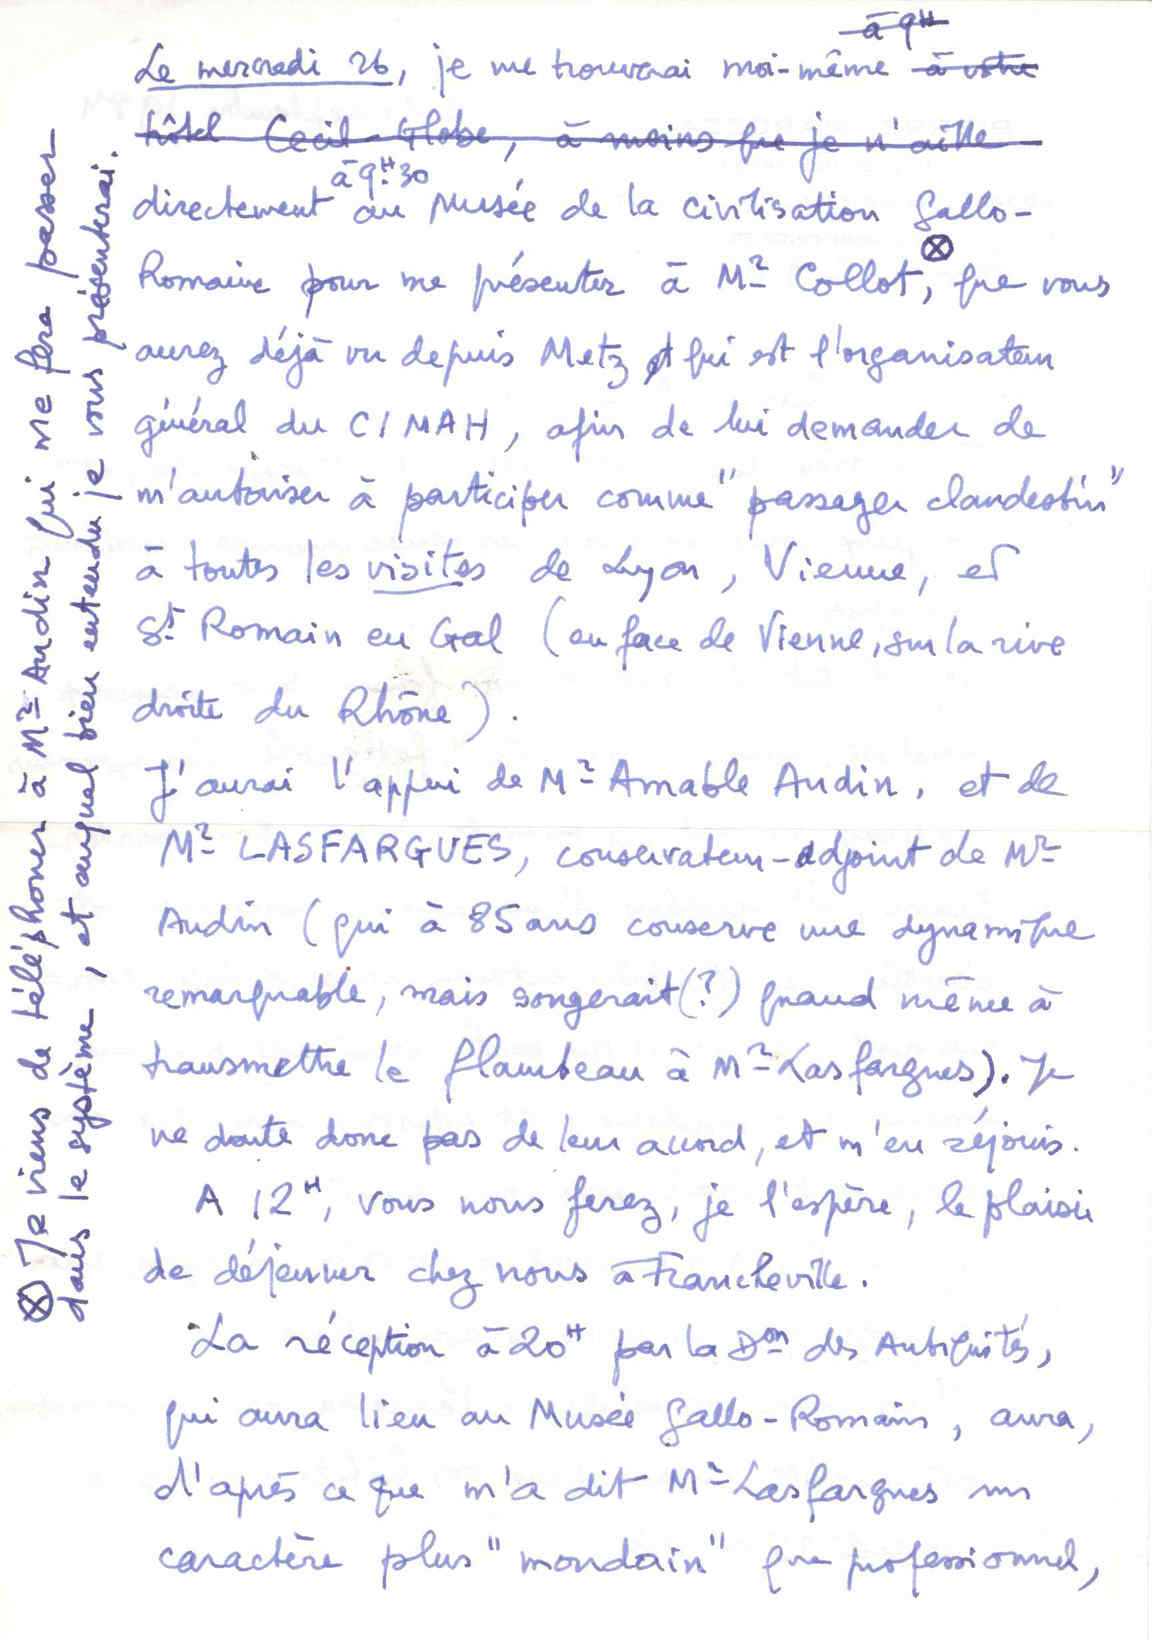 à 9H
Le mercredi 26, je me trouverai moi-même à votre
hôtel Cecil-Globe, à moins que je n'aille
à 9H.30
directement au Musée de la civilisation Gallo-
Romaine pour me présenter à Mr Collot, ⊗ que vous
aurez déjà vu depuis Metz et qui est l'organisateur
général du CIMAH, afin de lui demander de
m'autoriser à participer comme "passager clandestin"
à toutes les visites de Lyon, Vienne, et
St Romain en Gal (en face de Vienne, sur la rive
droite du Rhône).
J'aurai l'appui de Mr Amable Audin, et de
Mr LASFARGUES, conservateur-adjoint de Mr
Audin (qui à 85 ans conserve une dynamique
remarquable, mais songerait(?) quand même à
transmettre le flambeau à Mr Lasfargues). Je
ne doute donc pas de leur accord, et m'en réjouis.
A 12H, vous nous ferez, je l'espère, le plaisir
de déjeuner chez nous à Francheville.
La réception à 20H par la Don des Antiquités,
qui aura lieu au Musée Gallo-Romain, aura,
d'après ce que m'a dit Mr Lasfargues un
caractère plus "mondain" que professionnel,
⊗ Je viens de téléphoner à Mr Audin qui me fera passer
dans le système, et auquel bien entendu je vous présenterai.